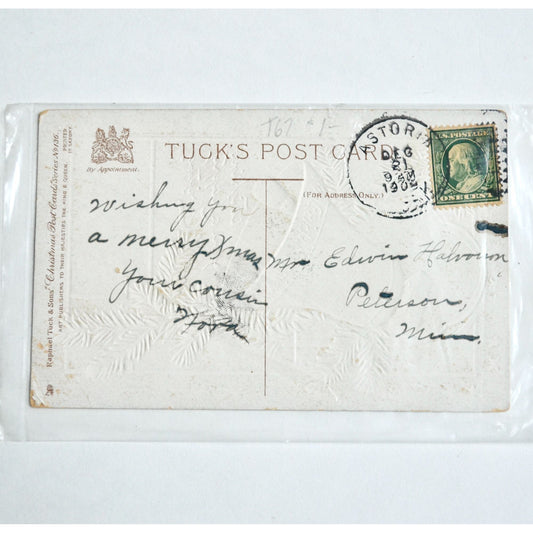 T67 $1-
TUCK'S POST CARD
By Appointment.
(FOR ADDRESS ONLY.)
Raphael Tuck & Sons' "Christmas" Post Card Series No 136.
ART PUBLISHERS TO THEIR MAJESTIES THE KING & QUEEN.
PRINTED
IN SAXONY.
ASTORIA
DEC
21
9
190
U.S. POSTAGE
ONE CENT
Wishing you
a merry Xmas
Your cousin
Nora
Mr. Edwin Halvorson,
Peterson,
Minn.